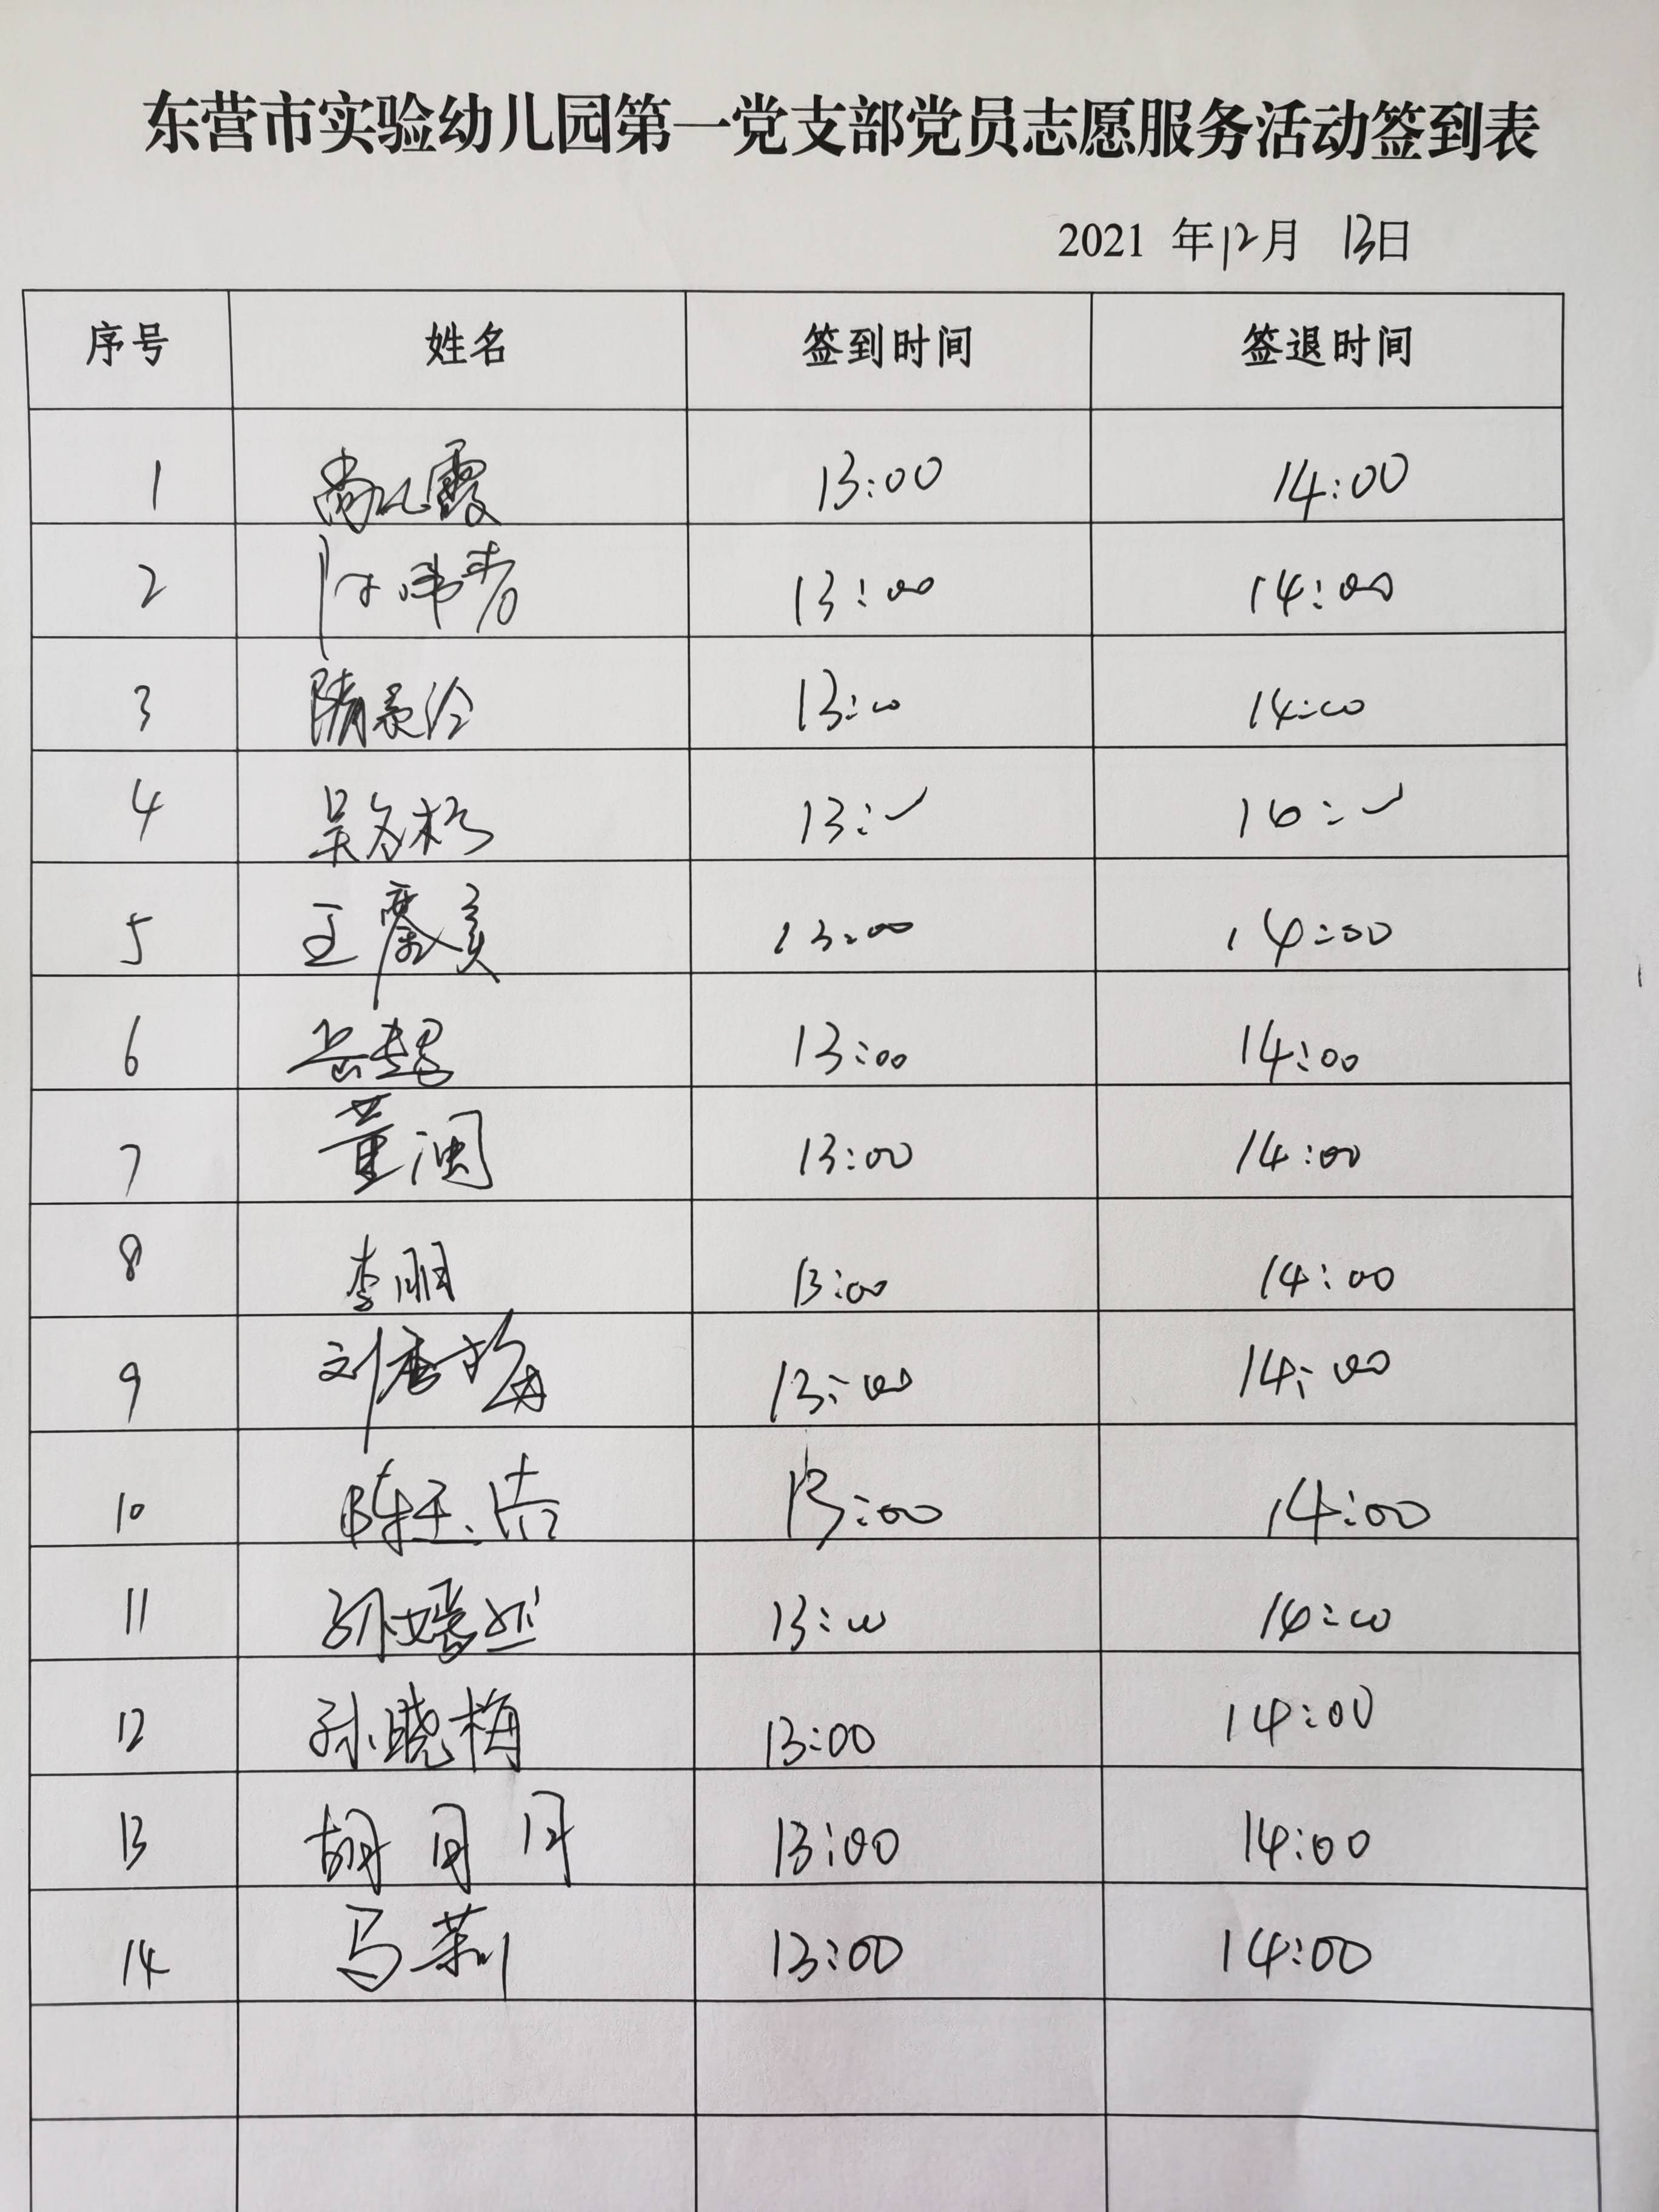 东营市实验幼儿园第一党支部党员志愿服务活动签到表
2021 年12月 13日
序号 姓名 签到时间 签退时间
1 13:00 14:00
2 13:00 14:00
3 13:00 14:00
4 13: 14:
5 王 美 13:00 14:00
6 岳 13:00 14:00
7 董润 13:00 14:00
8 李明 13:00 14:00
9 刘春梅 13:00 14:00
10 陈玉洁 13:00 14:00
11 孙嫣然 13:00 14:00
12 孙晓梅 13:00 14:00
13 胡月月 13:00 14:00
14 马莉 13:00 14:00